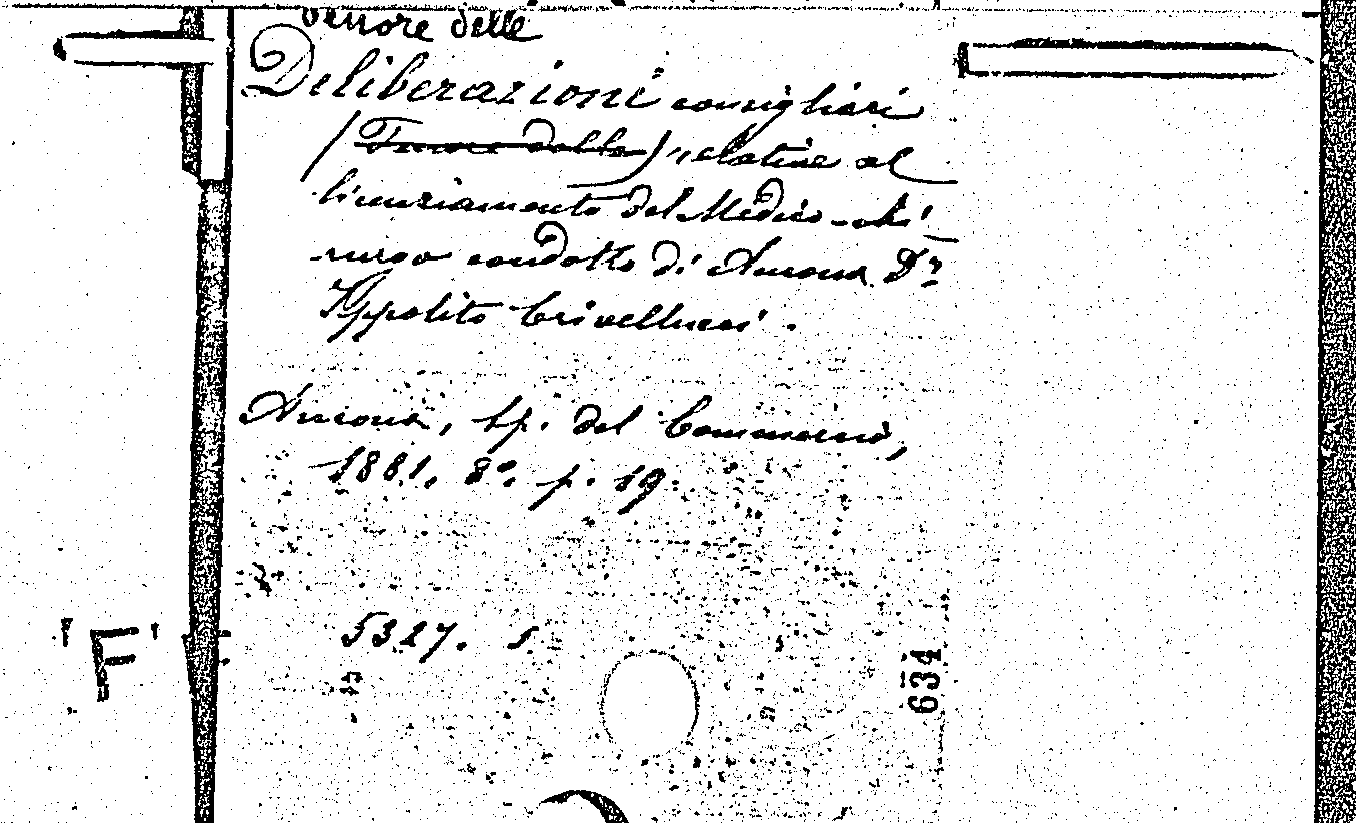 Tenore delle
Deliberazioni consigliari
(Tenore delle) relative al
licenziamento del Medico-chi-
rurgo condotto di Ancona Dr
Ippolito Crivellucci.
Ancona, tip. del Commercio,
1881. 8°. p. 19.
5327. 5.
634
"F"